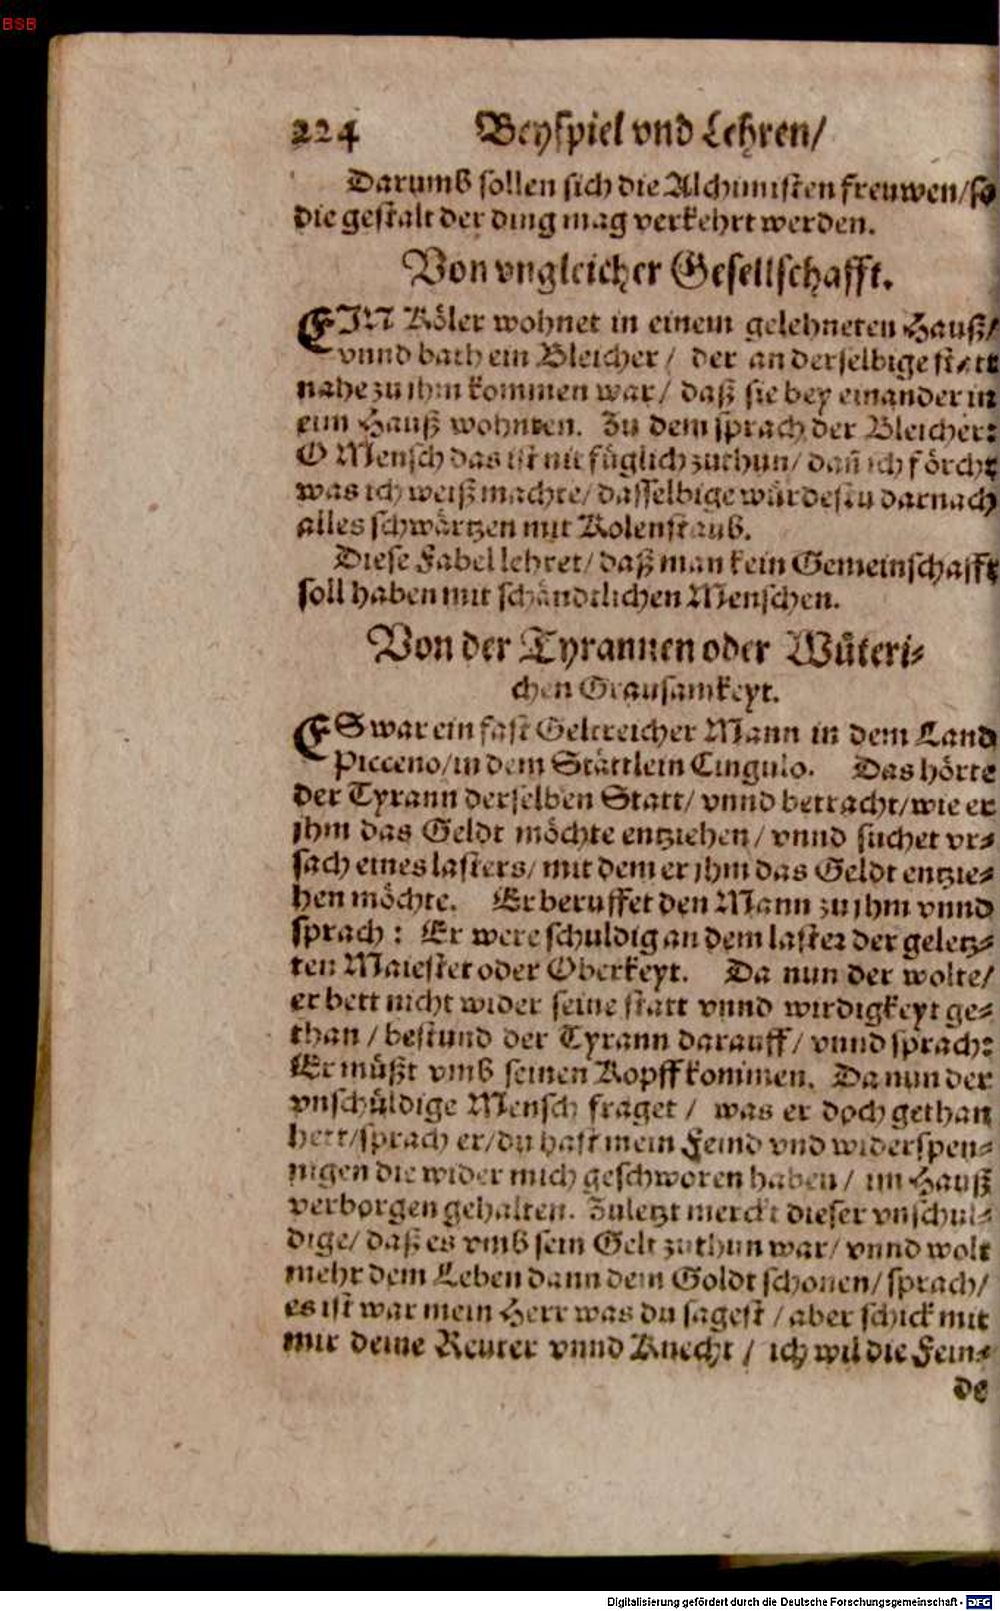 BSB
224 Beyspiel vnd Lehren/
Darumb sollen sich die Alchimisten freuwen/so
die gestalt der ding mag verkehrt werden.
Von vngleicher Gesellschafft.
EIN Köler wohnet in einem gelehneten Hauß/
vnnd bath ein Bleicher/ der an derselbige statt
nahe zu ihm kommen war/ daß sie bey einander in
eim Hauß wohnten. Zu dem sprach der Bleicher:
O Mensch das ist nit füglich zuthun/ dañ ich förcht
was ich weiß machte/ dasselbige würdestu darnach
alles schwärtzen mit Kolenstaub.
Diese Fabel lehret/ daß man kein Gemeinschafft
soll haben mit schändtlichen Menschen.
Von der Tyrannen oder Wüteri-
chen Grausamkeyt.
ES war ein fast Geltreicher Mann in dem Land
Picceno/in dem Stättlein Cingulo. Das hörte
der Tyrann derselben Statt/ vnnd betracht/wie er
jhm das Geldt möchte entziehen/ vnnd suchet vr-
sach eines lasters/ mit dem er jhm das Geldt entzie-
hen möchte. Er beruffet den Mann zu jhm vnnd
sprach: Er were schuldig an dem laster der geletz-
ten Maiestet oder Oberkeyt. Da nun der wolte/
er hett nicht wider seine statt vnnd wirdigkeyt ge-
than/ bestund der Tyrann darauff/ vnnd sprach:
Er müßt vmb seinen Kopff kommen. Da nun der
vnschüldige Mensch fraget/ was er doch gethan
hett/sprach er/du hast mein Feind vnd widerspen-
nigen die wider mich geschworen haben/ im Hauß
verborgen gehalten. Zuletzt merckt dieser vnschul-
dige/ daß es vmb sein Gelt zuthun war/ vnnd wolt
mehr dem Leben dann dem Goldt schonen/ sprach/
es ist war mein Herr was du sagest/ aber schick mit
mir deine Reuter vnnd Knecht/ ich wil die Fein-
de
Digitalisierung gefördert durch die Deutsche Forschungsgemeinschaft - DFG